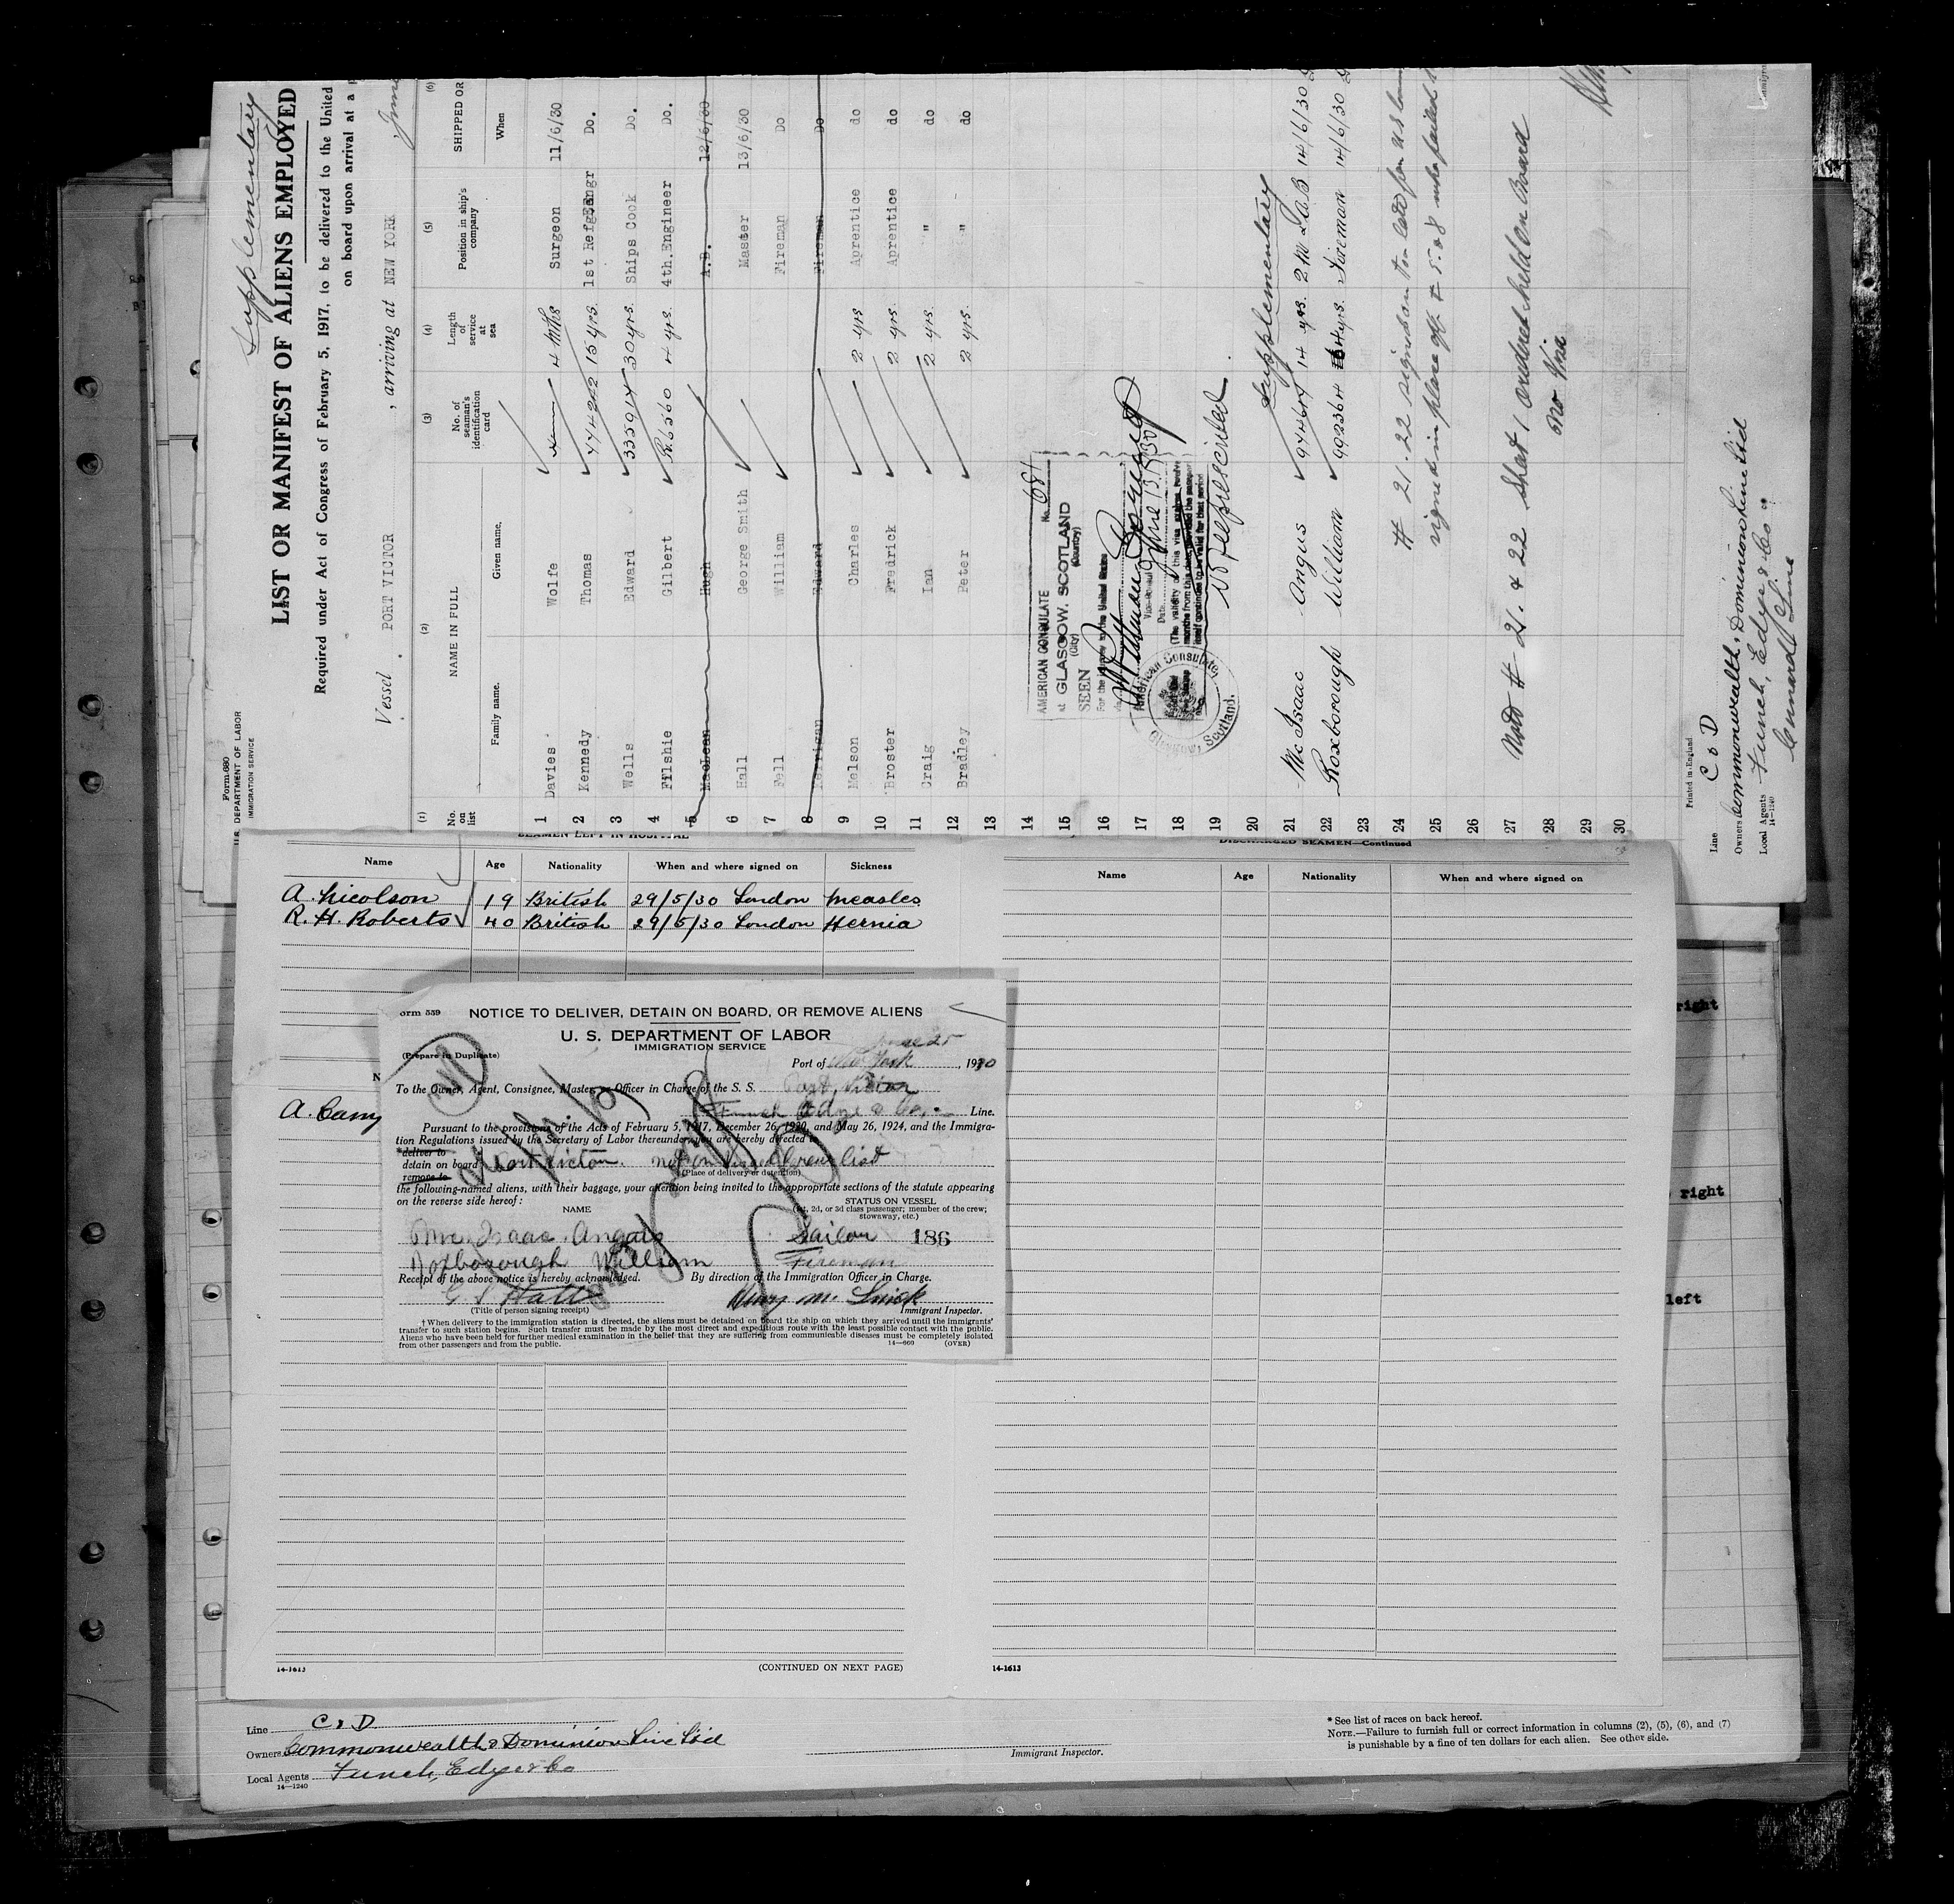 Supplementary
Form 680
U.S. DEPARTMENT OF LABOR
IMMIGRATION SERVICE
LIST OR MANIFEST OF ALIENS EMPLOYED
Required under Act of Congress of February 5, 1917, to be delivered to the United
on board upon arrival at a
Vessel PORT VICTOR , arriving at NEW YORK
(1) (2) (3) (4) (5) (6)
No. on list NAME IN FULL No. of seaman's identification card Length of service at sea Position in ship's company SHIPPED OR
Family name. Given name. When
1 Davies Wolfe 4 mths Surgeon 11/6/30
2 Kennedy Thomas 744242 15 yrs. 1st Refg Engr Do.
3 Wells Edward 335914 30 yrs. Ships Cook Do.
4 Filshie Gilbert R.6560 4 yrs. 4th.Engineer Do.
5 MacLean Hugh A.B. 12/6/30
6 Hall George Smith Master 13/6/30
7 Fell William Fireman Do
8 Kerrigan Edward Fireman Do
9 Melson Charles 2 yrs Aprentice do
10 Broster Fredrick 2 yrs. Aprentice do
11 Craig Ian 2 yrs. " do
12 Bradley Peter 2 yrs. " do
13
14
15
16
17
18
19
20
AMERICAN CONSULATE No. 681
at GLASGOW, SCOTLAND
(City) (Country)
SEEN
For the journey to the United States
(The validity of this visa expires twelve
months from this date, provided the passport
itself continues to be valid for that period
American Consulate
Glasgow, Scotland.
No fee prescribed.
Supplementary
21 McIsaac Angus 974647 14 yrs. 14/6/30
22 Roxborough William 992364 4 yrs. Fireman 14/6/30
23
24
25
26
27
28
29
30
# 21-22 signed on too late for US
signed in place of # 5 & 8 who failed
Note # 21 & 22 ordered held on Board
no Visa
Printed in England
Line C & D
Owners Commonwealth & Dominion Line Ltd
Local Agents Funch, Edye & Co
14-1240
Cunard Line
SEAMEN LEFT IN HOSPITAL
Name Age Nationality When and where signed on Sickness
A. Nicolson 19 British 29/5/30 London Measles
R. H. Roberts 40 British 29/5/30 London Hernia
A. Camp
DISCHARGED SEAMEN—Continued
Name Age Nationality When and where signed on
orm 559 NOTICE TO DELIVER, DETAIN ON BOARD, OR REMOVE ALIENS
U. S. DEPARTMENT OF LABOR
IMMIGRATION SERVICE
(Prepare in Duplicate)
Port of New York June 25, 1930
To the Owner, Agent, Consignee, Master, or Officer in Charge of the S. S. Port Victor
Funch Edye & Co. Line.
Pursuant to the provisions of the Acts of February 5, 1917, December 26, 1920, and May 26, 1924, and the Immigra-
tion Regulations issued by the Secretary of Labor thereunder, you are hereby directed to
*deliver to
detain on board Port Victor. not on visaed Crew list
remove to
(Place of delivery or detention)
the following-named aliens, with their baggage, your attention being invited to the appropriate sections of the statute appearing
on the reverse side hereof:
NAME
STATUS ON VESSEL
(1st, 2d, or 3d class passenger; member of the crew;
stowaway, etc.)
McIsaac Angus Sailor 186
Roxborough William Fireman
Receipt of the above notice is hereby acknowledged. By direction of the Immigration Officer in Charge.
G S Hall Henry M.
(Title of person signing receipt) Immigrant Inspector.
† When delivery to the immigration station is directed, the aliens must be detained on board the ship on which they arrived until the immigrants'
transfer to such station begins. Such transfer must be made by the most direct and expeditious route with the least possible contact with the public.
Aliens who have been held for further medical examination in the belief that they are suffering from communicable diseases must be completely isolated
from other passengers and from the public.
14—660 (OVER)
right
right
left
14-1613 (CONTINUED ON NEXT PAGE)
14-1613
Line C & D
Owners Commonwealth & Dominion Line Ltd
Local Agents Funch, Edye & Co
14—1240
Immigrant Inspector.
* See list of races on back hereof.
NOTE.—Failure to furnish full or correct information in columns (2), (5), (6), and (7)
is punishable by a fine of ten dollars for each alien. See other side.